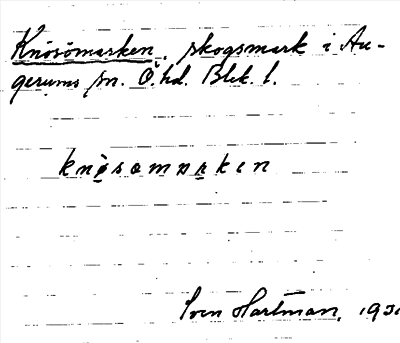 Knösömarken, skogsmark i Au-
gerums sn. Ö. hd. Blek. l.
knøsomarken
Sven Hartman, 193